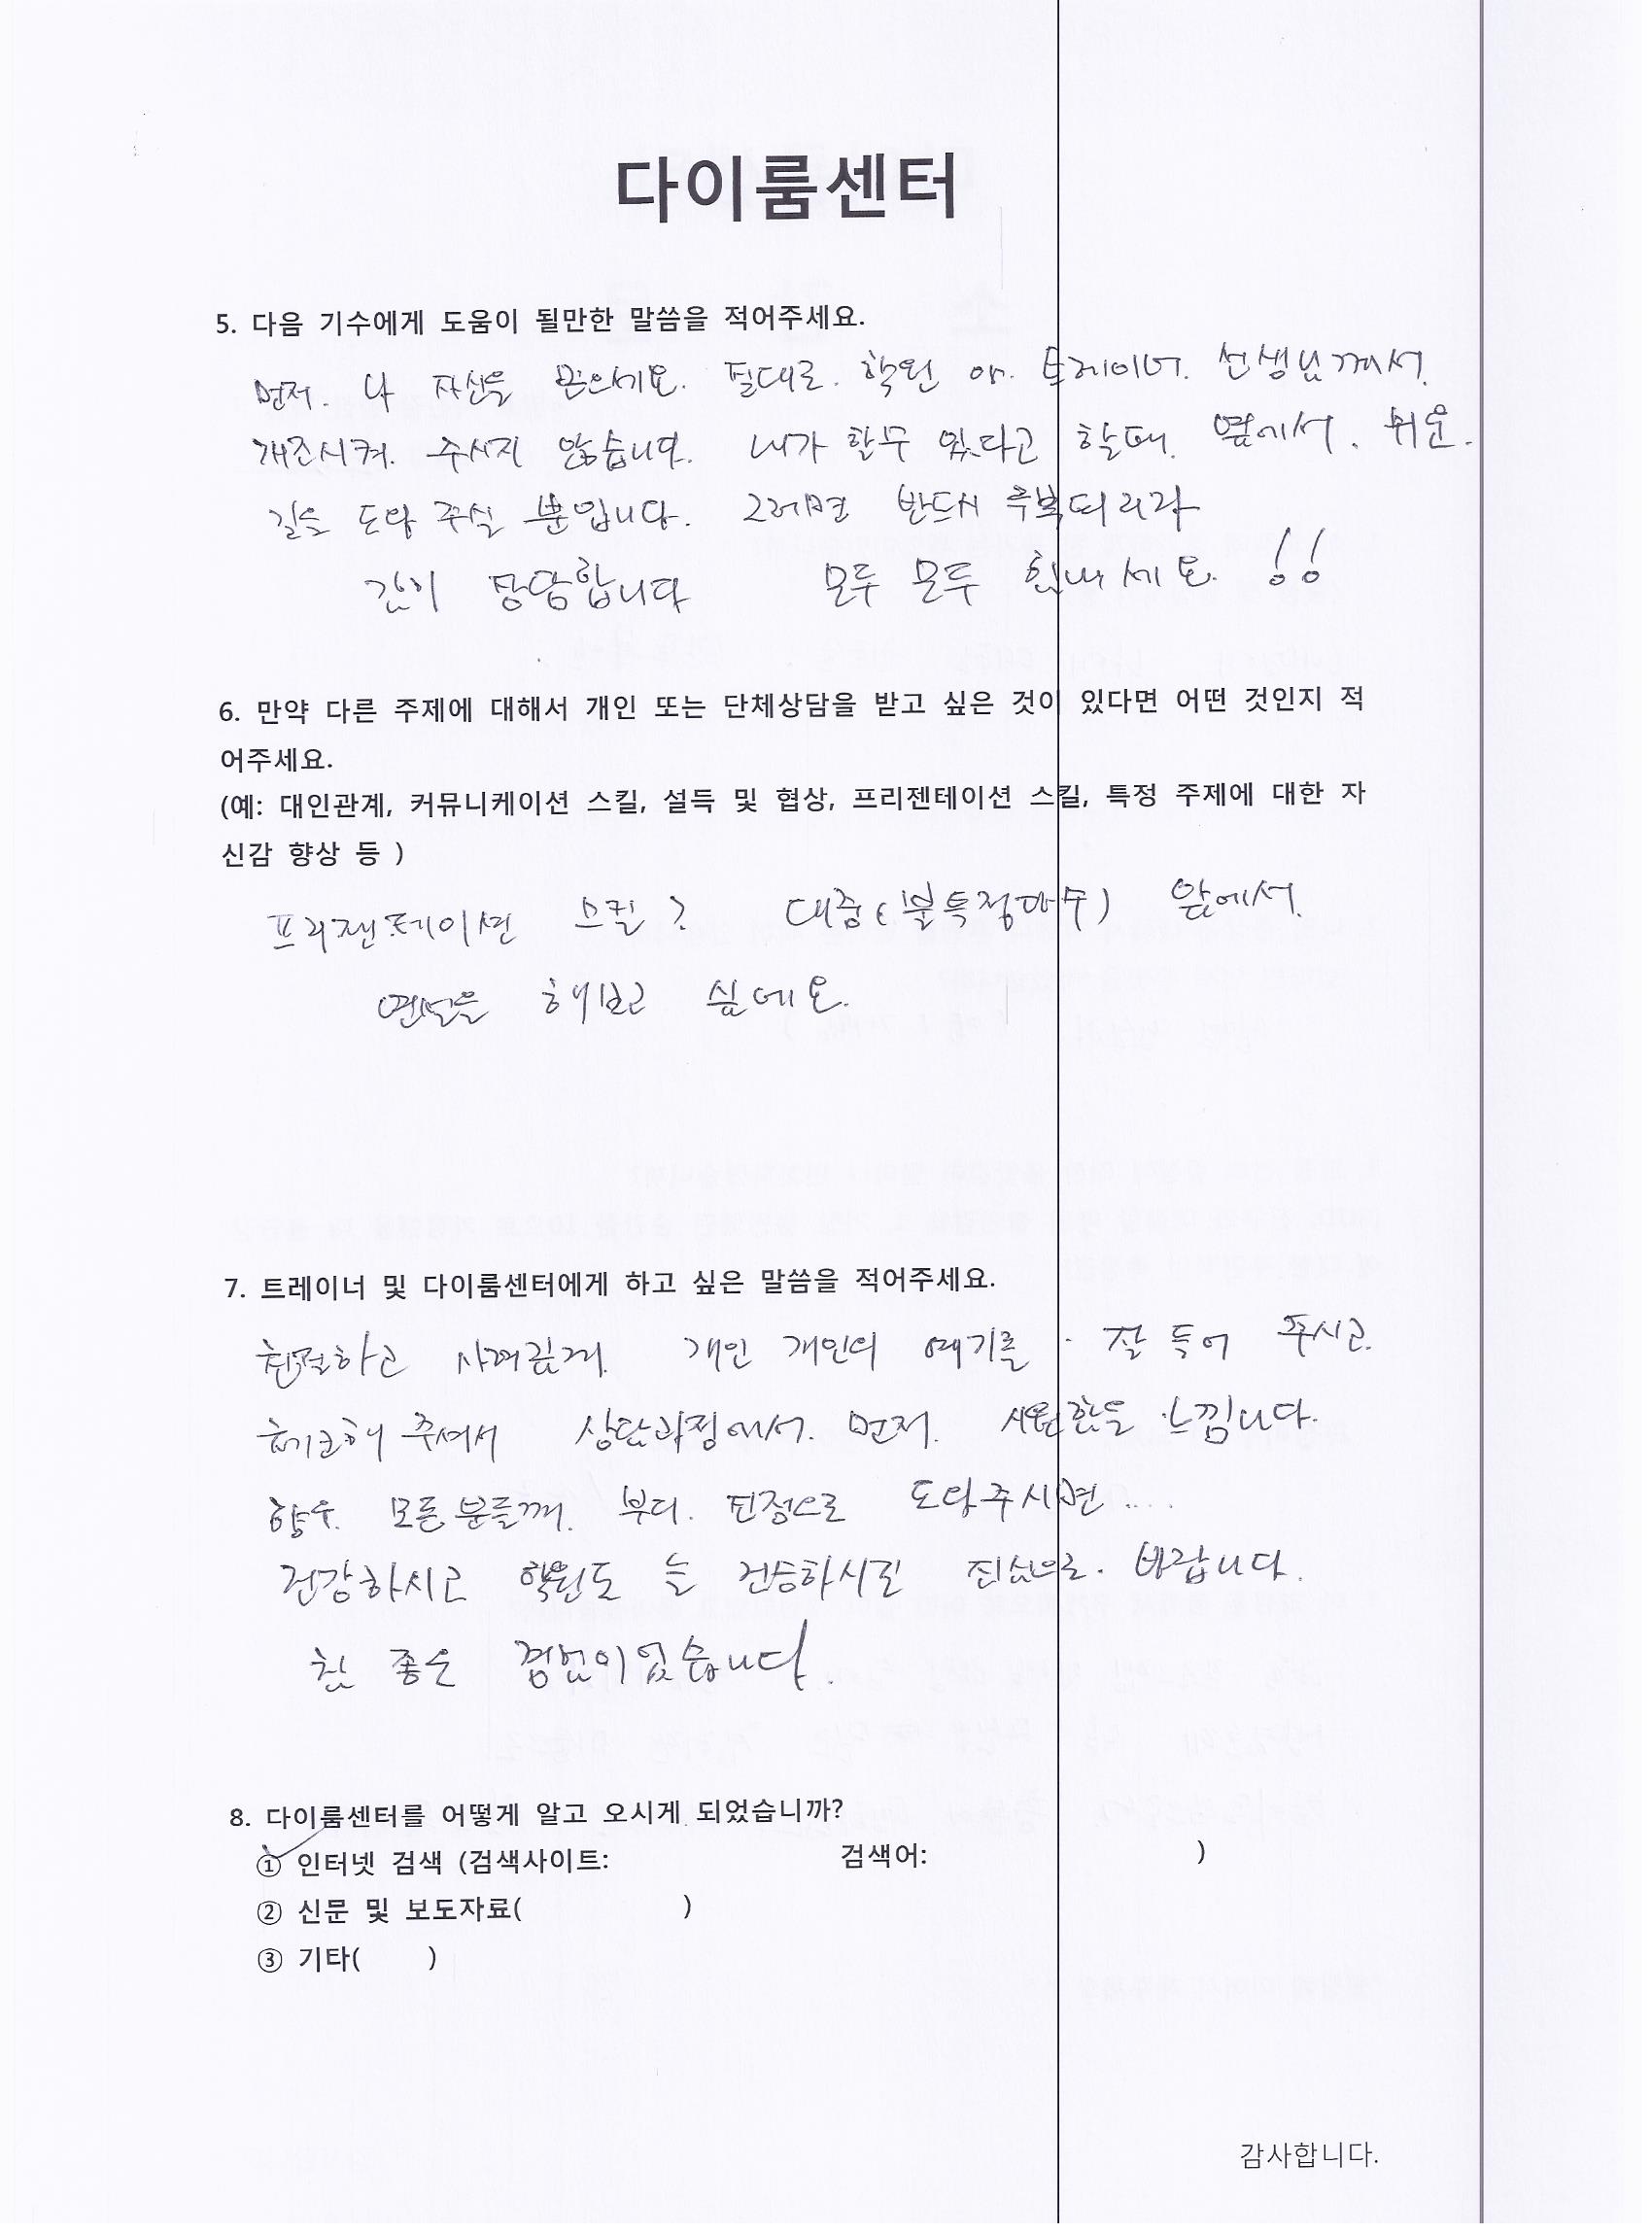 다이룸센터
5. 다음 기수에게 도움이 될만한 말씀을 적어주세요.
먼저. 나 자신을 믿으세요. 절대로. 학원 트레이너. 선생님께서.
개조시켜. 주시지 않습니다. 내가 할수 있다고 할때. 옆에서. 쉬운.
길을 도와 주실 분입니다. 그러면 반드시 극복되리라
감히 장담합니다 모두 모두 힘내세요. !!
6. 만약 다른 주제에 대해서 개인 또는 단체상담을 받고 싶은 것이 있다면 어떤 것인지 적
어주세요.
(예: 대인관계, 커뮤니케이션 스킬, 설득 및 협상, 프리젠테이션 스킬, 특정 주제에 대한 자
신감 향상 등 )
프리젠테이션 스킬? 대중(불특정다수) 앞에서.
연설을 해보고 싶네요.
7. 트레이너 및 다이룸센터에게 하고 싶은 말씀을 적어주세요.
친절하고 사려깊게. 개인 개인의 얘기를 잘 들어 주시고.
체크해 주셔서 상담과정에서. 먼저. 시원함을 느낍니다.
향후. 모든분들께. 부디. 진정으로 도와주시면....
건강하시고 학원도 늘 건승하시길 진심으로. 바랍니다.
참 좋은 경험이었습니다.
8. 다이룸센터를 어떻게 알고 오시게 되었습니까?
① 인터넷 검색 (검색사이트: 검색어: )
② 신문 및 보도자료( )
③ 기타( )
감사합니다.